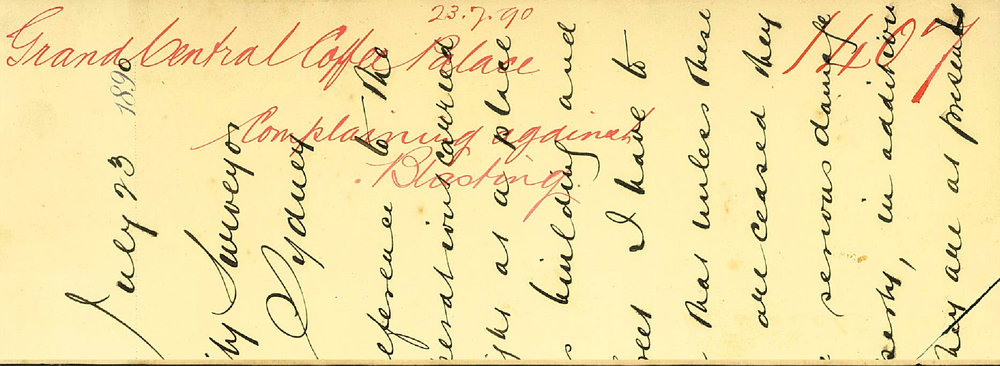 23.7.90
Grand Central Coffee Palace
1407
Complaining against
Blasting
July 23 1890
ity Surveyor
Sydney
eference to the
perations carried
place
s building and
reet I have to
that unless these
are ceased they
serious damage
perty, in addition
they are at present